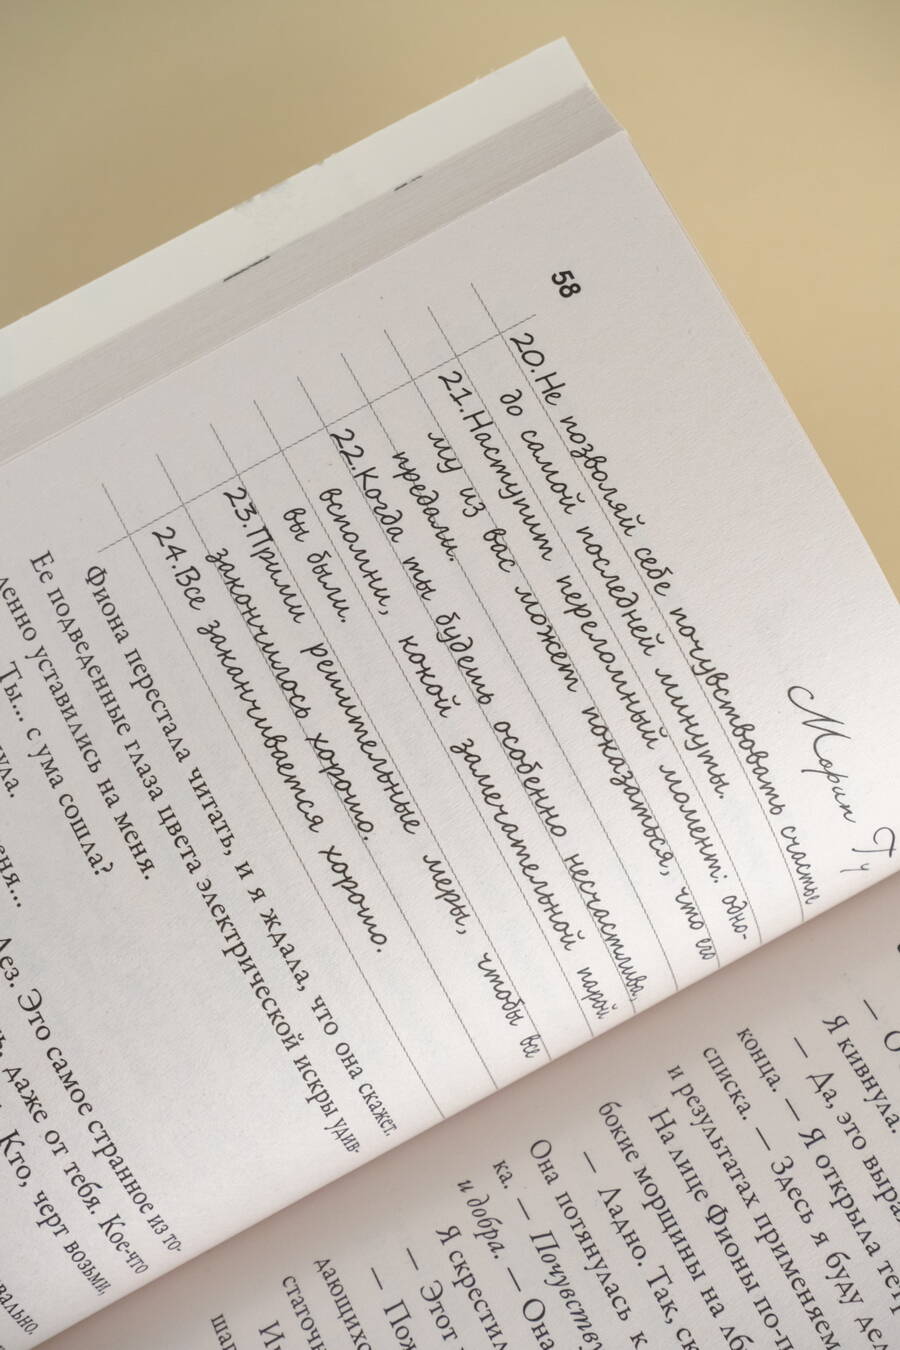 58
Морин
20. Не позволяй себе почувствовать счастье
до самой последней минуты.
21. Наступит переломный момент: одно-
му из вас может показаться, что его
предали.
22. Когда ты будешь особенно несчастлива,
вспомни, какой замечательной парой
вы были.
23. Прими решительные меры, чтобы все
закончилось хорошо.
24. Все заканчивается хорошо.
Фиона перестала читать, и я ждала, что она скажет.
Ее подведенные глаза цвета электрической искры удив-
ленно уставились на меня.
Ты... с ума сошла?
Это самое странное из то-
даже от тебя. Кое-что
Кто, черт возьми,
— О
Я кивнула.
— Да, это
конца. — Я открыла
списка. — Здесь я буду
и результатах
На лице Фионы
бокие морщины на
— Ладно. Так,
Она потянулась к
ка. —
и добра. — Она
Я
— Этот
—
дающих